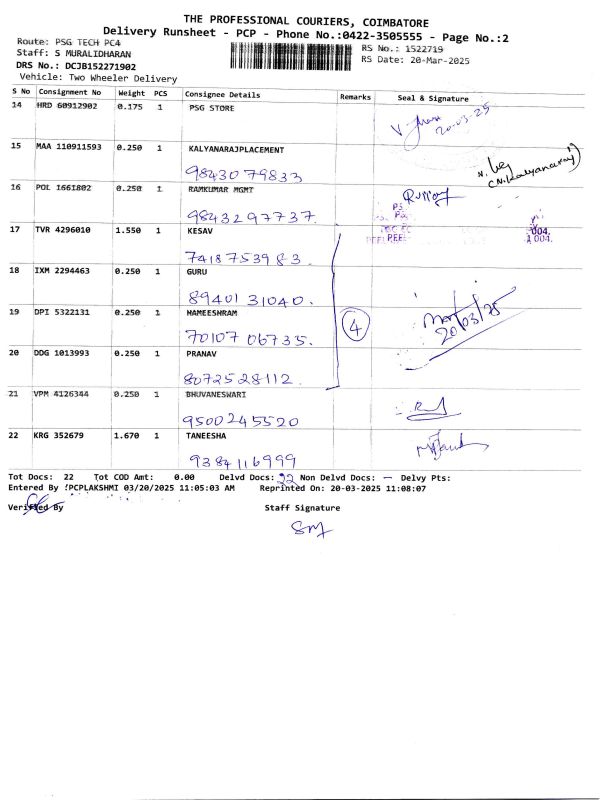 THE PROFESSIONAL COURIERS, COIMBATORE
Delivery Runsheet - PCP - Phone No.:0422-3505555 - Page No.:2
Route: PSG TECH PC4
RS No.: 1522719
Staff: S MURALIDHARAN
RS Date: 20-Mar-2025
DRS No.: DCJB152271902
Vehicle: Two Wheeler Delivery
S No Consignment No Weight PCS Consignee Details Remarks Seal & Signature
14 HRD 60912902 0.175 1 PSG STORE
20-03-25
15 MAA 110911593 0.250 1 KALYANARAJPLACEMENT
98430 79833
(N.Kalyanaraj)
16 POL 1661802 0.250 1 RAMKUMAR MGMT
98432 97737.
17 TVR 4296010 1.550 1 KESAV
7418753983.
004.
1 004.
18 IXM 2294463 0.250 1 GURU
89401 31040.
19 DPI 5322131 0.250 1 HAMEESHRAM
70107 06735.
4
20/03/25
20 DDG 1013993 0.250 1 PRANAV
8072528112.
21 VPM 4126344 0.250 1 BHUVANESWARI
9500245520
22 KRG 352679 1.670 1 TANEESHA
9384116999
Tot Docs: 22 Tot COD Amt: 0.00 Delvd Docs: 22 Non Delvd Docs: — Delvy Pts:
Entered By !PCPLAKSHMI 03/20/2025 11:05:03 AM Reprinted On: 20-03-2025 11:08:07
Verified By Staff Signature